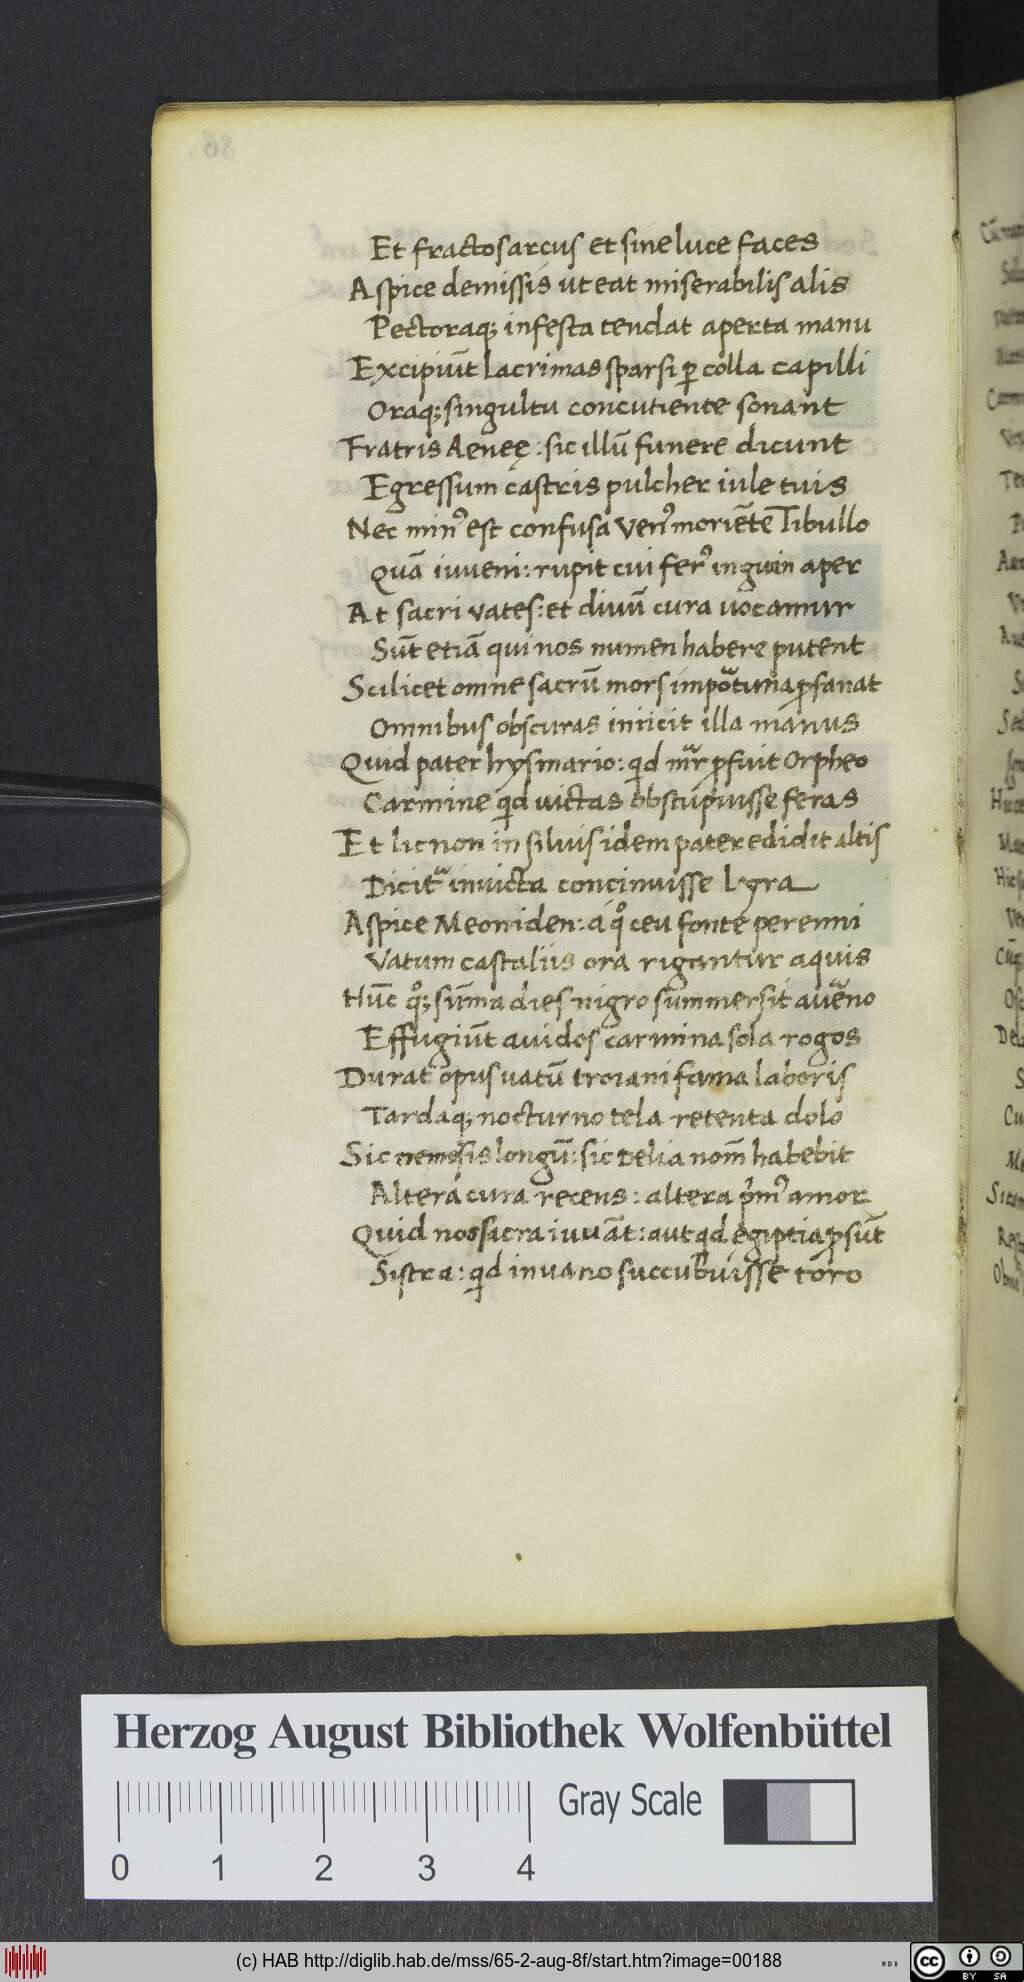 Et fractos arcus et sine luce faces
Aspice demissis ut eat miserabilis alis
Pectoraq; infesta tendat aperta manu
Excipiūt lacrimas sparsi ꝑ colla capilli
Oraq; singultu concutiente sonant
Fratris Aeneę: sic illū funere dicunt
Egressum castris pulcher iule tuis
Nec minꝰ est confusa venꝰ moriēte Tibullo
Quā iuveni: rupit cui ferꝰ inguin aper
At sacri vates: et diuū cura uocamur
Sūt etiā qui nos numen habere putent
Scilicet omne sacrū mors importuna ꝓfanat
Omnibus obscuras iniicit illa manus
Quid pater hysmario: qd mr ꝓfuit Orpheo
Carmine qd uictas obstupuisse feras
Et licnon in siluis idem pater edidit altis
Dicitᵃ inuicta concinuisse Lyra
Aspice Meoniden: a qͦ ceu fonte perenni
Vatum castaliis ora rigantur aquis
Hūc qͦ; sūma dies nigro summersit auerno
Effugiūt auidos carmina sola rogos
Durat opus vatū troiani fama laboris
Tardaq; nocturno tela retenta dolo
Sic nemesis longū: sic Delia nom̄ habebit
Altera cura recens: altera pͥmꝰ amor
Quid nos sacra iuuāt: aut qd egiptia ꝓsūt
Sistra: qd in uano succubuisse toro
Herzog August Bibliothek Wolfenbüttel
Gray Scale
0 1 2 3 4
(c) HAB http://diglib.hab.de/mss/65-2-aug-8f/start.htm?image=00188
cc BY SA